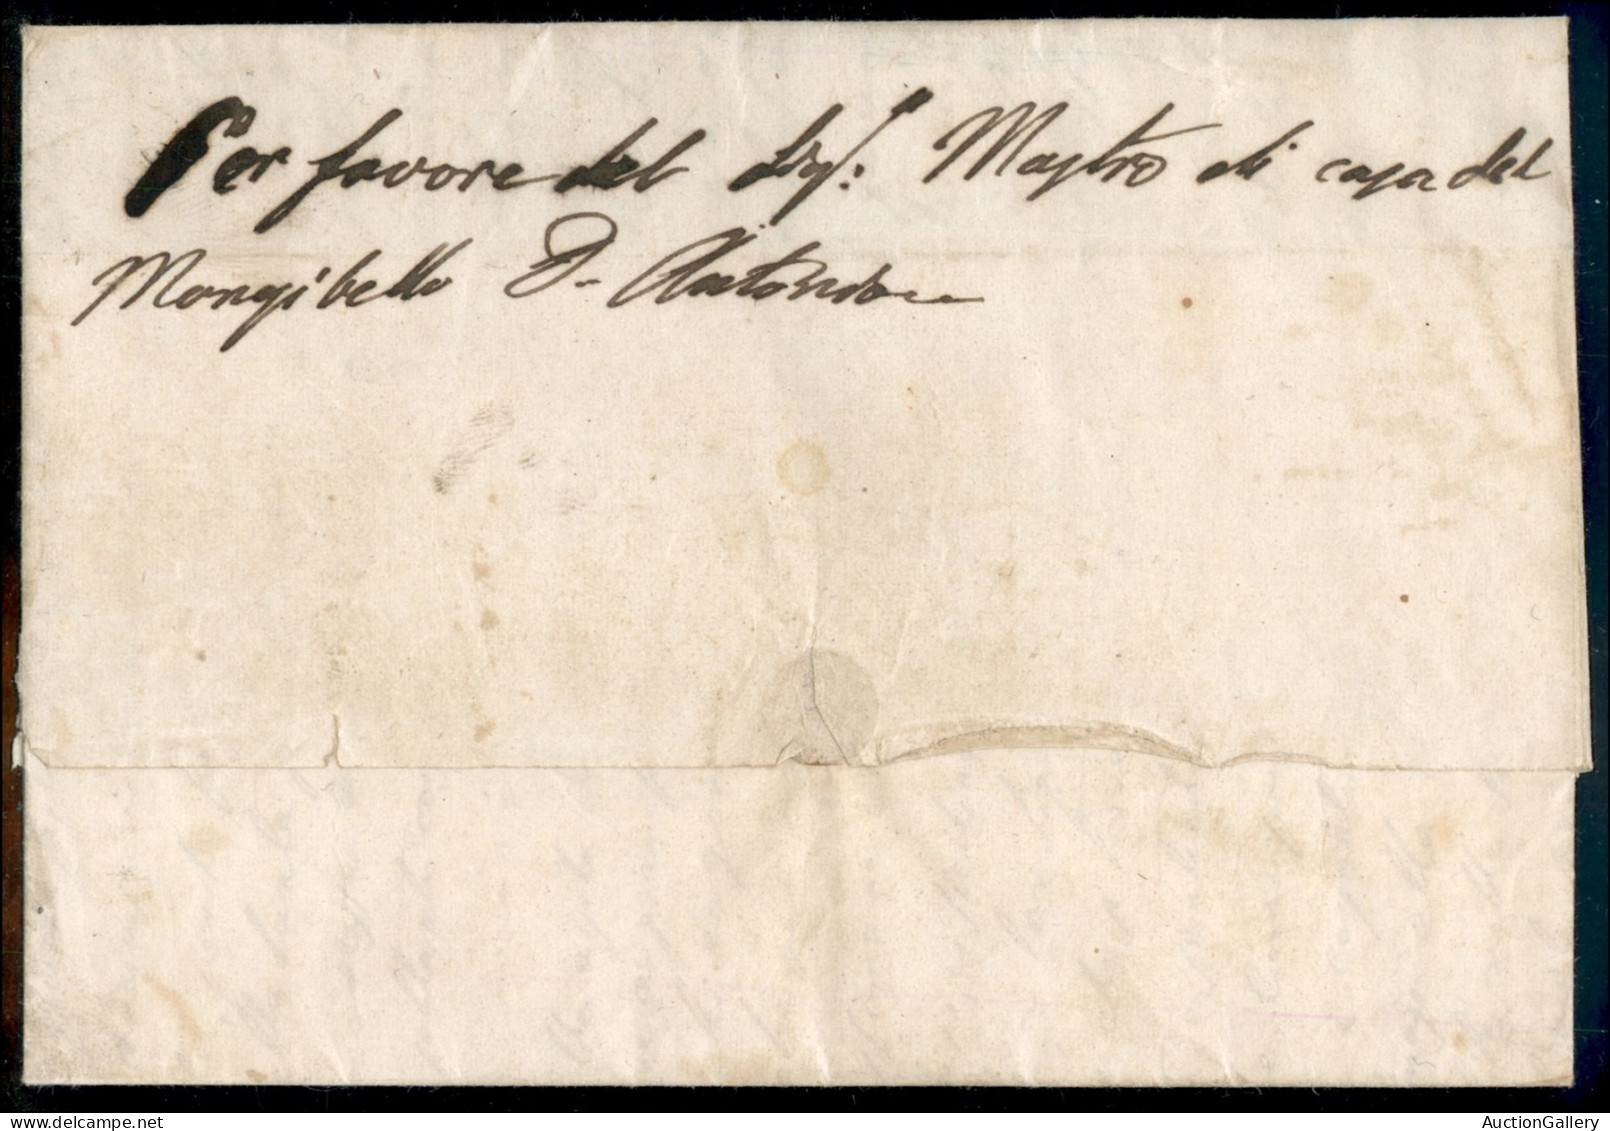 Per favore del Sigr. Mastro di casa del
Mongibello D. Antonio
AuctionGallery
delcampe.net